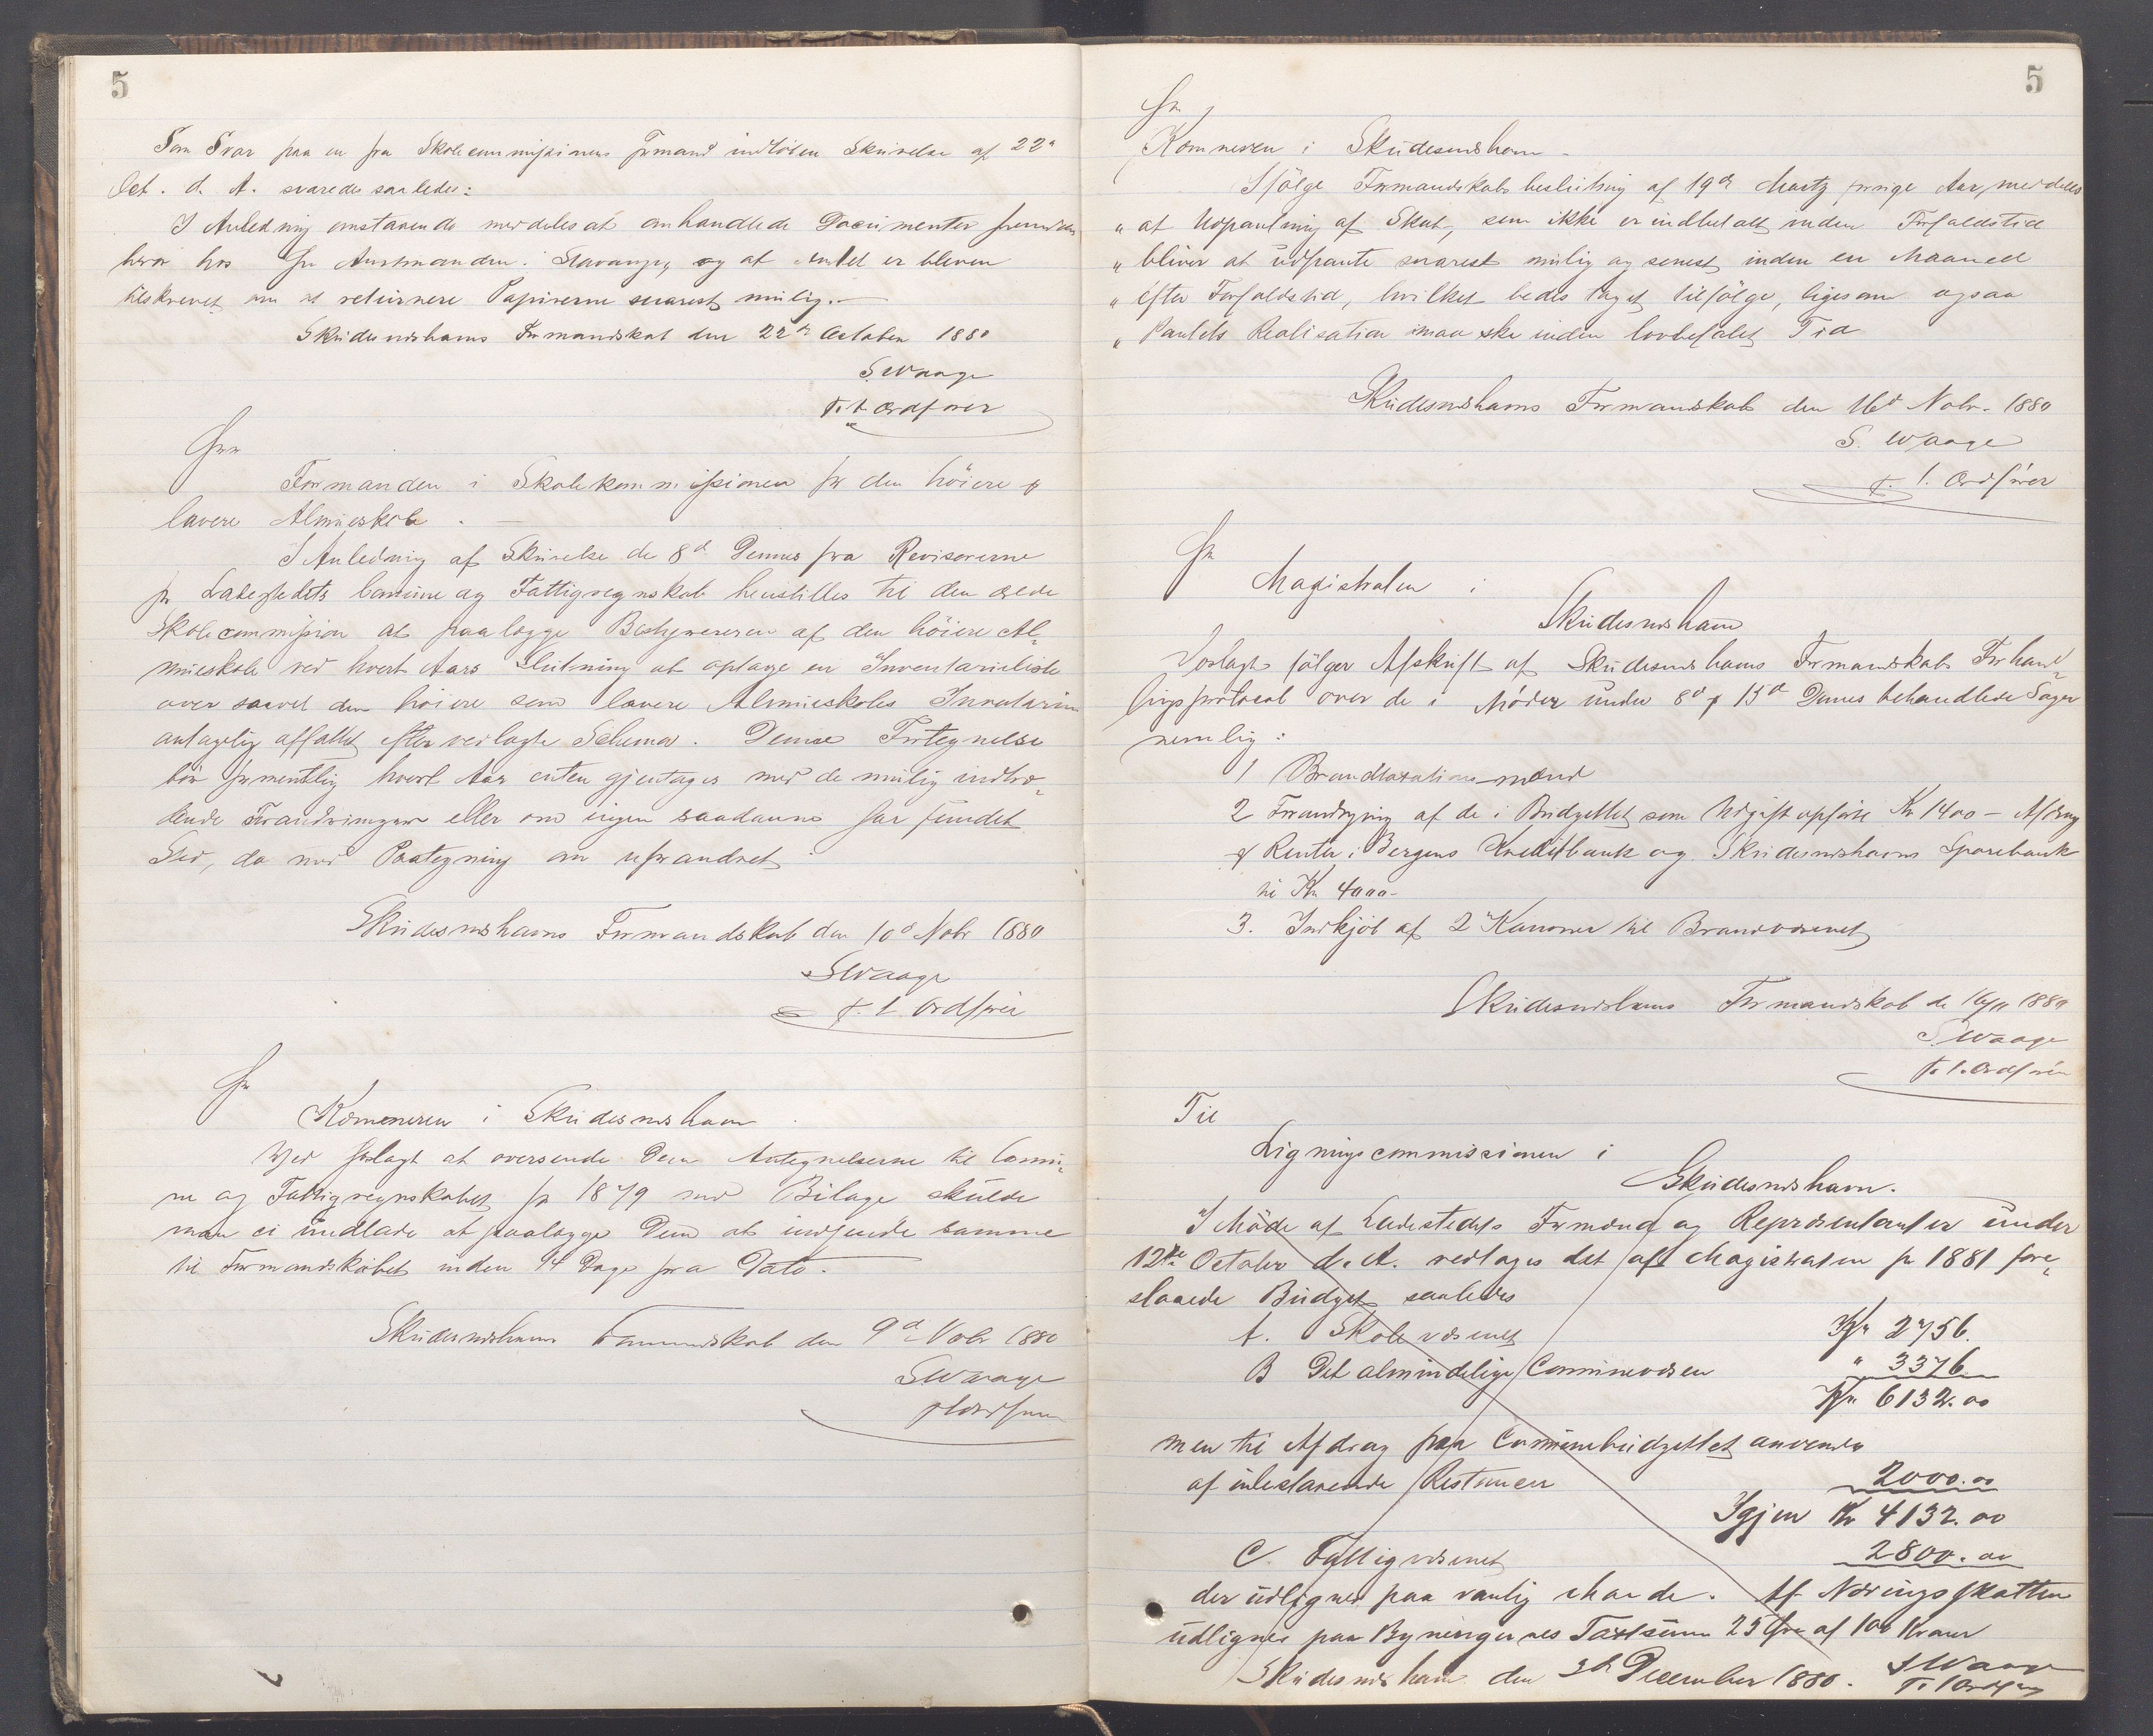 5
Som Svar paa en fra Skolecommissionens Formand indløben Skrivelse af 22d
Oct. d. A. svaredes saaledes:
I Anledning omstaaende meddeles at omhandlede Documenter
hos Hr Amtmanden i Stavanger, og at Amtet er bleven
tilskrevet om at returnere Papirerne snarest mulig. —
Skudesneshavns Formandskab den 22de October 1880
S. Waage
f. t. Ordfører
Herr
Formanden i Skolekommissionen for den höiere &
lavere Almueskole. —
I Anledning af Skrivelse de 8d Dennes fra Revisorerne
for Ladestedets Comune og Fattigregnskab henstilles til den ærede
Skolecommission at paalægge Bestyreren af den höiere Al-
mueskole ved hvert Aars Slutning at optage en Inventarieliste
over saavel den höiere som lavere Almueskoles Inventarium
antagelig affattet efter vedlagte Schema. Denne Fortegnelse
bör formentlig hvert Aar enten gjentages med de mulig indtræ-
dende Forandringer eller om ingen saadanne har fundet
Sted, da med Paategning om uforandret
Skudesneshavns Formandskab den 10d Nobr 1880
S Waage
f. t. Ordfører
Hr
Kæmneren i Skudesneshavn
Ved forlagt at oversende Dem Antegnelserne til Comu-
ne og Fattigregnskabet for 1879 med Bilage skulde
man ei undlade at paalægge Dem at indsende samme
til Formandskabet inden 14 Dage fra Dato.
Skudesneshavns Formandskab den 9d Nobr 1880
S Waage
ftOrdfører
5
Hr
Kæmneren i Skudesneshavn —
Ifölge Formandskabsbeslutning af 19de Martz forrige Aar meddeles
" at Udpantning af Skat, som ikke er indbetalt inden Forfaldstid
" bliver at udpante snarest mulig og senest inden en Maaned
" efter Forfaldstid, hvilket bedes taget tilfölge, ligesom ogsaa
" Pantets Realisation maa ske inden lovbefalet Tid
Skudesneshavns Formandskab den 16d Nobr. 1880
S. Waage
f. t. Ordförer
Hr
Magistraten i
Skudesneshavn
Vedlagt fölger Afskrift af Skudesneshavns Formandskabs Forhand-
lingsprotocol over de i Möder under 8d & 15d Dennes behandlede Sager
nemlig:
1 Brandtaxationsmænd
2 Forandring af de i Budgettet som Udgift opførte Kr 1400 – Afdrag
& Renter i Bergens Kreditbank og Skudesneshavns Sparebank
til Kr 4000 –
3. Indkjöb af 2 Kanoner til Brandvæsenet
Skudesneshavns Formandskab de 16/11 1880
S. Waage
f. t. Ordförer
Til
Ligningscommissionen i
Skudesneshavn.
I Möde af Ladestedets Formænd og Repræsentanter under
12te October d. A. vedtages det af Magistraten for 1881 fore-
slaaede Budget saaledes
A. Skolevæsenet Kr 2756.
B Det almindelige Communevæsen " 3376.
Kr. 6132.00
men til Afdrag paa Communebudgettet anvendes
af udestaaende Restancer 2000.00
Igjen Kr 4132.00
C. Fattigvæsenet 2800.00
der udlignes paa vanlig Maade. Af Næringsskatten
udlignes paa Bygningernes Taxtsum 25 Öre af 100 Kroner
Skudesneshavn den 3de December 1880. S Waage
f. t Ordförer